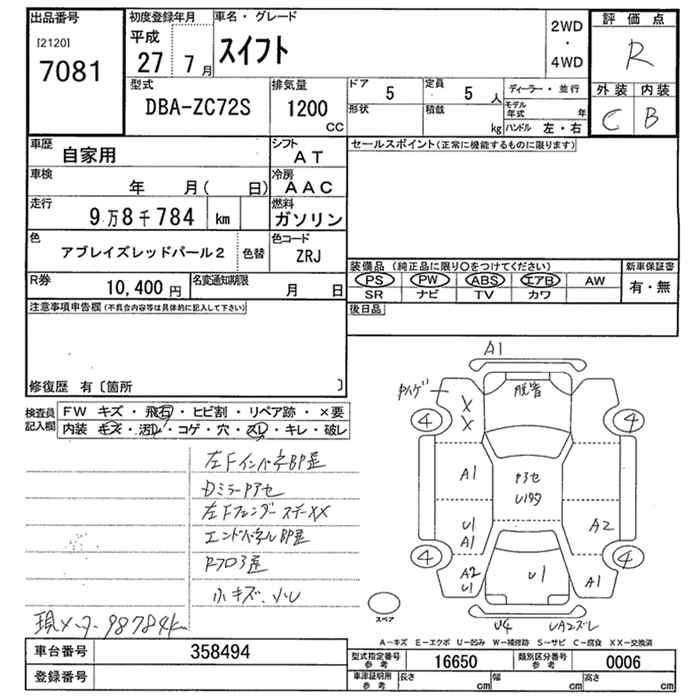 出品番号
[2120]
7081
初度登録年月
平成
27 7月
車名・グレード
スイフト
2WD
・
4WD
評価点
R
外装 内装
C B
型式
DBA-ZC72S
排気量
1200
CC
ドア 5
定員 5人
形状
積載 kg
ディーラー・並行
モデル年式 年
ハンドル 左・右
車歴 自家用
シフト AT
車検 年 月( 日)
冷房 AAC
走行 9万8千784 km
燃料 ガソリン
色 アブレイズレッドパール2 色替
色コード ZRJ
R券 10,400円
名変通知期限 月 日
セールスポイント(正常に機能するものに限ります)
装備品(純正品に限り○をつけてください)
PS PW ABS エアB AW
SR ナビ TV カワ
新車保証書
有・無
後日品
注意事項申告欄(不具合内容等は具体的に記入して下さい)
修復歴 有〔箇所 〕
検査員記入欄
FW キズ・飛石・ヒビ割・リペア跡・×要
内装 キズ・汚レ・コゲ・穴・スレ・キレ・破レ
左Fインパネ部歪
Dミラーアセ
左Fフェンダーステー××
エンドパネル部歪
RフロアS歪
小キズ、小U
現メーター98784km
A1
4 X
X
4
A1
U1
A1
A2
A2
U1
U1
A1
4 4
U4
UA2ズレ
スペア
A-キズ E-エクボ U-凹み W-補修跡 S-サビ C-腐食 XX-交換済
車台番号 358494
登録番号
型式指定番号
参考
16650
類別区分番号
参考
0006
車庫証明用
参考
長さ cm
幅 cm
高さ cm